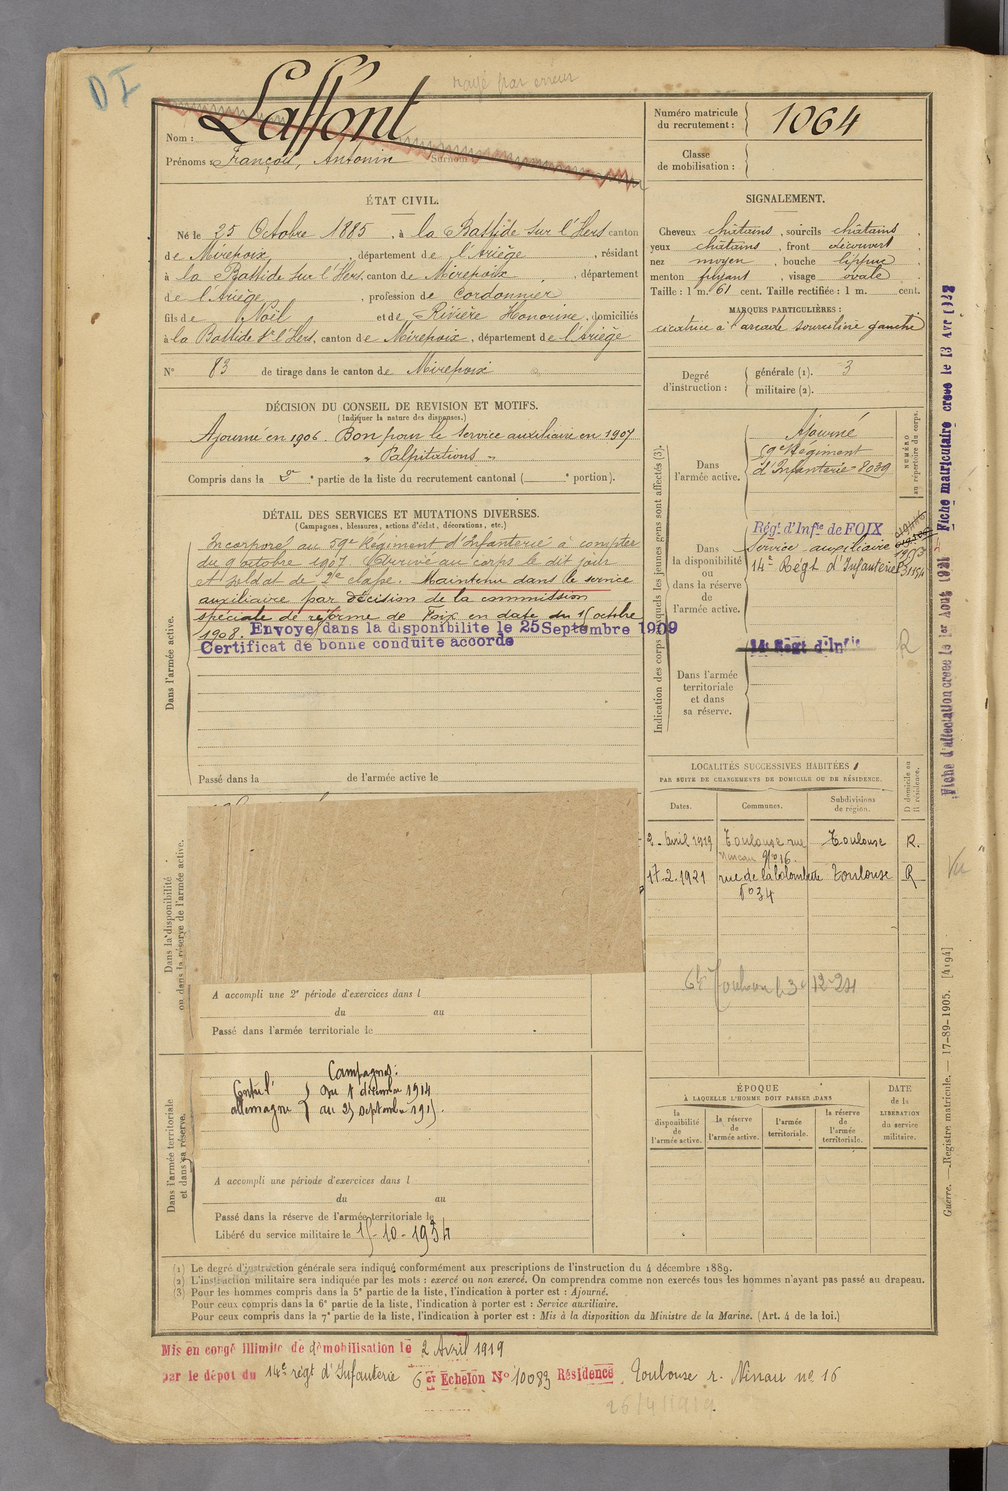 D I
rayé par erreur
Nom : Laffont
Prénoms : François, Antonin Surnom
Numéro matricule du recrutement : 1064
Classe de mobilisation :
ÉTAT CIVIL.
Né le 25 Octobre 1885, à la Bastide sur l'Hers canton
de Mirepoix, département de l'Ariège, résidant
à la Bastide sur l'Hers, canton de Mirepoix, département
de l'Ariège, profession de Cordonnier
fils de Noël et de Rivière Honorine, domiciliés
à la Bastide sr l'Hers, canton de Mirepoix, département de l'Ariège
N° 83 de tirage dans le canton de Mirepoix
SIGNALEMENT.
Cheveux châtains, sourcils châtains
yeux châtains, front découvert
nez moyen, bouche lippue
menton fuyant, visage ovale
Taille : 1 m. 61 cent. Taille rectifiée : 1 m. cent.
MARQUES PARTICULIÈRES :
cicatrice à l'arcade sourcilière gauche
Degré d'instruction : générale (1). 3
militaire (2).
DÉCISION DU CONSEIL DE REVISION ET MOTIFS.
(Indiquer la nature des dispenses.)
Ajourné en 1906. Bon pour le service auxiliaire en 1907
" Palpitations "
Compris dans la 2e partie de la liste du recrutement cantonal ( e portion).
DÉTAIL DES SERVICES ET MUTATIONS DIVERSES.
(Campagnes, blessures, actions d'éclat, décorations, etc.)
Dans l'armée active.
Incorporé au 59e Régiment d'Infanterie à compter
du 9 octobre 1907. Arrivé au corps le dit jour
et soldat de 2e classe. Maintenu dans le service
auxiliaire par décision de la commission
spéciale de réforme de Foix en date du 15 octobre
1908. Envoyé dans la disponibilité le 25 Septembre 1909
Certificat de bonne conduite accordé
Passé dans la de l'armée active le
Indication des corps auxquels les jeunes gens sont affectés (3).
NUMÉRO au répertoire du corps.
Dans l'armée active.
Ajourné
59e Régiment
d'Infanterie - 8039
Dans la disponibilité ou dans la réserve de l'armée active.
Régt d'Infie de FOIX
Service auxiliaire
14e Régt d'Infanterie
Dans l'armée territoriale et dans sa réserve.
14e Régt d'Infie
R
LOCALITÉS SUCCESSIVES HABITÉES
PAR SUITE DE CHANGEMENTS DE DOMICILE OU DE RÉSIDENCE.
Dates. Communes. Subdivisions de région. D domicile ou R résidence.
2. Avril 1919 Toulouse rue Ninau No 16. Toulouse R.
17.2.1921 rue de la Colombette No 34 Toulouse R
Dans la disponibilité ou dans la réserve de l'armée active.
A accompli une 2e période d'exercices dans l
du au
Passé dans l'armée territoriale le
Dans l'armée territoriale et dans sa réserve.
Campagnes :
Contre l'Allemagne { du 1 décembre 1914
au 25 septembre 1915.
A accompli une période d'exercices dans l
du au
Passé dans la réserve de l'armée territoriale le
Libéré du service militaire le 15-10-1934
ÉPOQUE
À LAQUELLE L'HOMME DOIT PASSER DANS
la disponibilité de l'armée active. la réserve de l'armée active. l'armée territoriale. la réserve de l'armée territoriale.
DATE de la LIBÉRATION du service militaire.
(1) Le degré d'instruction générale sera indiqué conformément aux prescriptions de l'instruction du 4 décembre 1889.
(2) L'instruction militaire sera indiquée par les mots : exercé ou non exercé. On comprendra comme non exercés tous les hommes n'ayant pas passé au drapeau.
(3) Pour les hommes compris dans la 5e partie de la liste, l'indication à porter est : Ajourné.
Pour ceux compris dans la 6e partie de la liste, l'indication à porter est : Service auxiliaire.
Pour ceux compris dans la 7e partie de la liste, l'indication à porter est : Mis à la disposition du Ministre de la Marine. (Art. 4 de la loi.)
Mis en congé illimité de démobilisation le 2 Avril 1919
par le dépôt du 14e régt d'Infanterie 6 et Echelon No 10083 Résidence, Toulouse r. Ninau no 16
25/4/1919
Fiche d'affectation créée le 1er Août 1921 Fiche matriculaire créée le 13 Avr 1922
Vu
Guerre. — Registre matricule. — 17-89-1905. [4194]